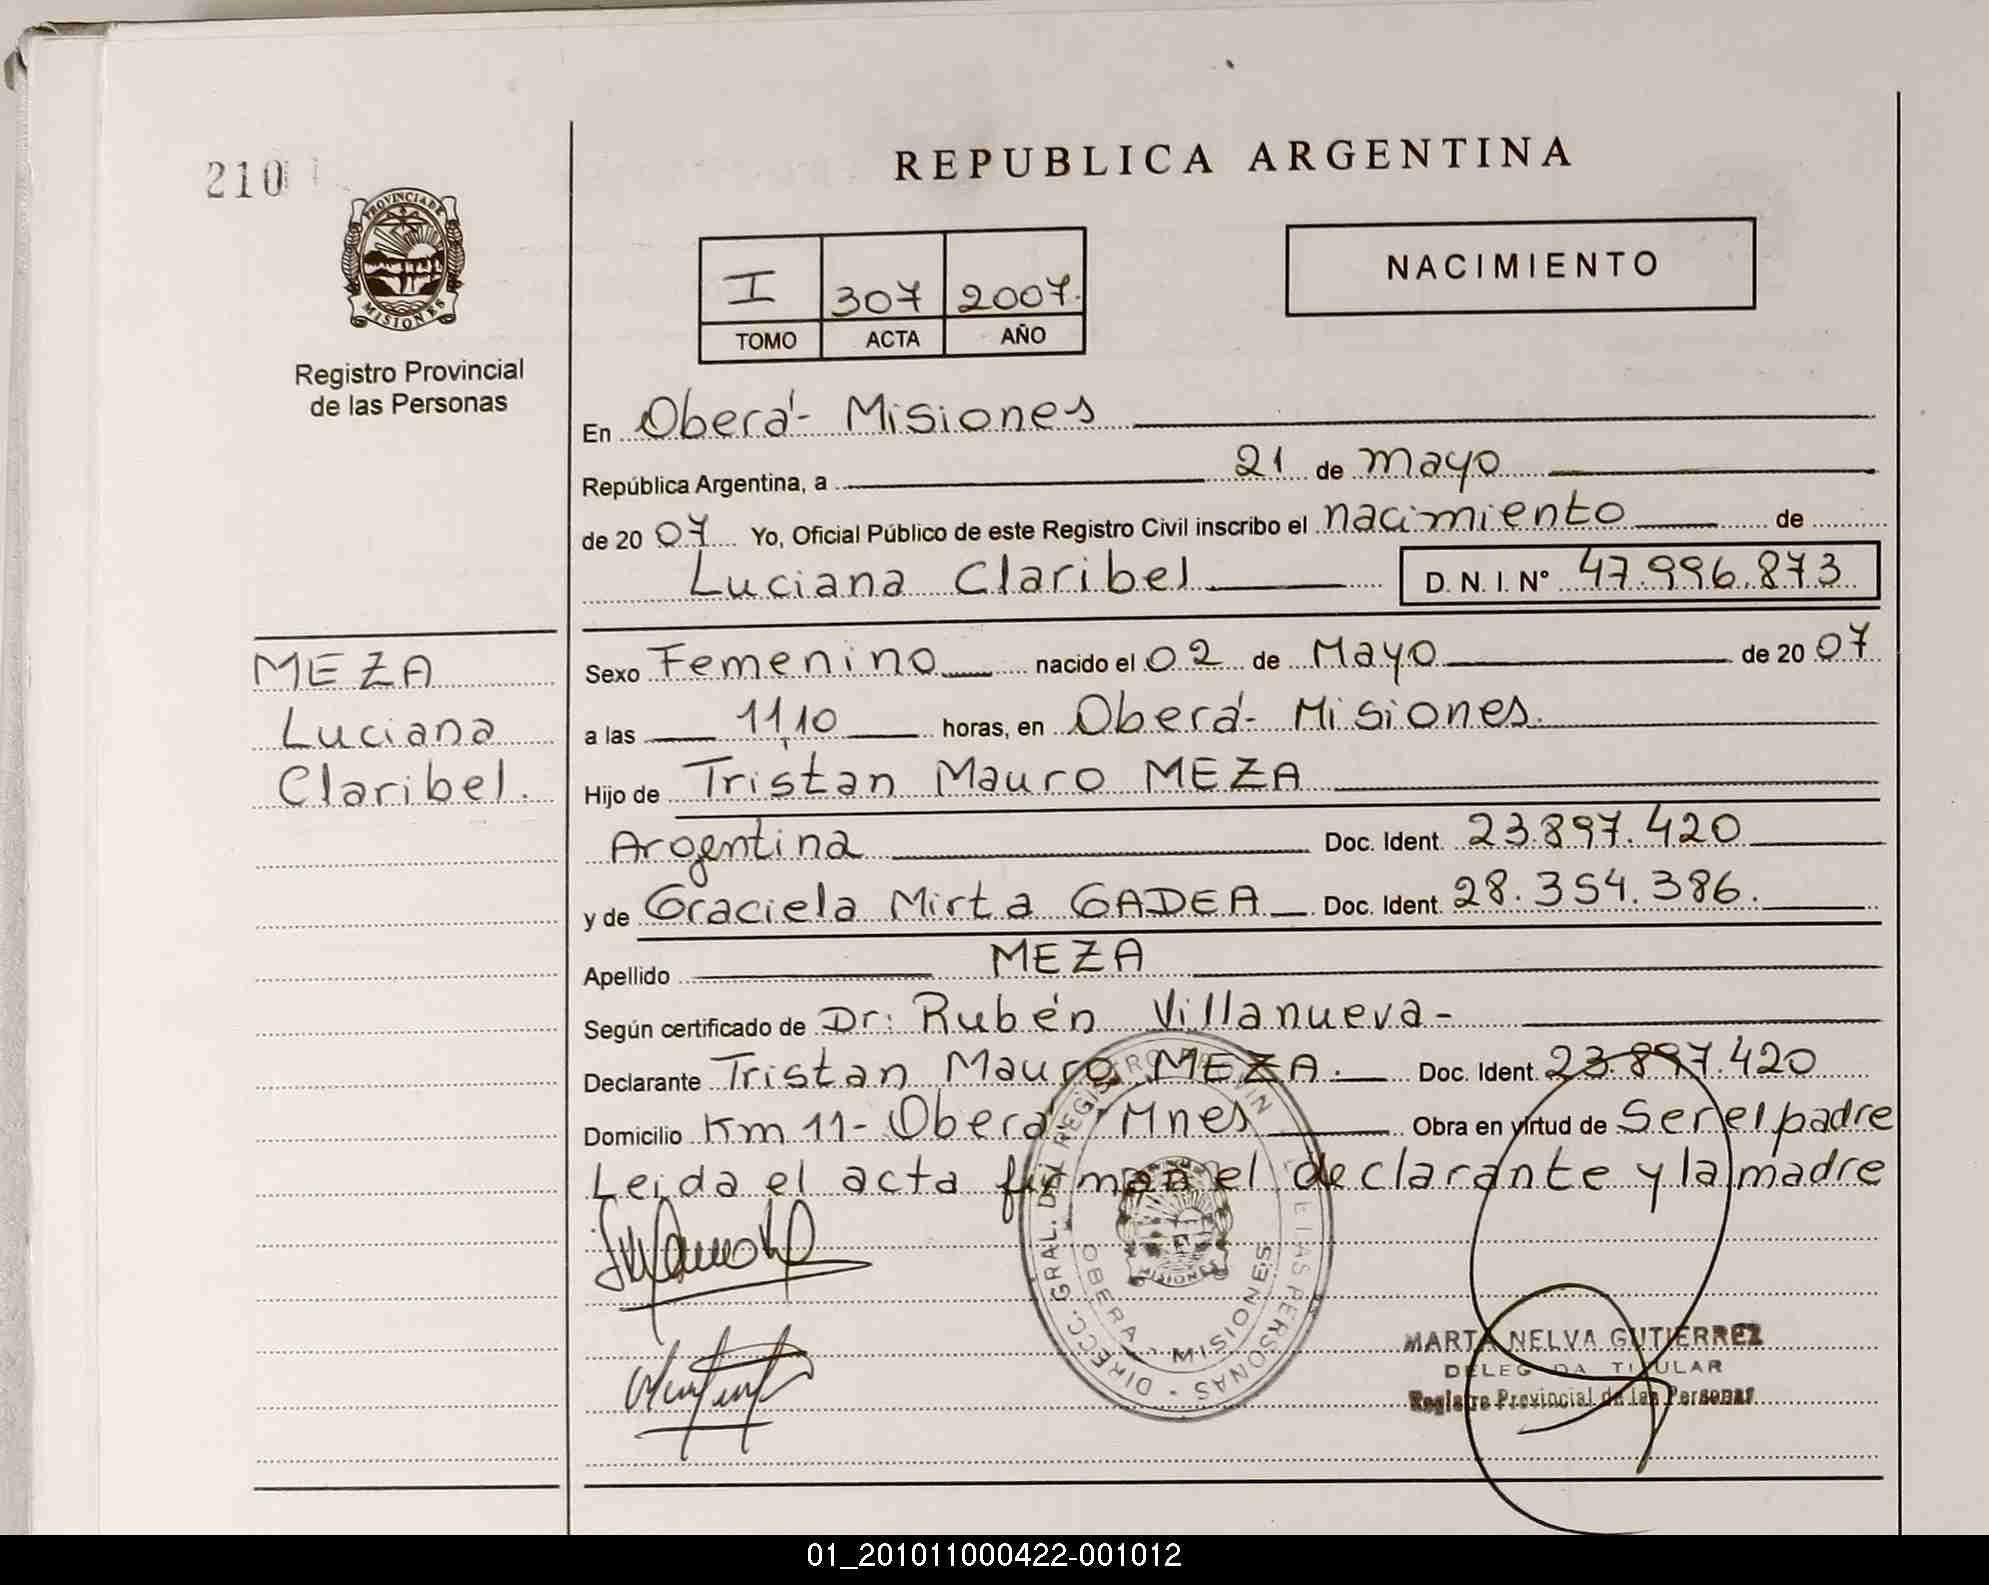 210
PROVINCIA DE
MISIONES
Registro Provincial
de las Personas
REPUBLICA ARGENTINA
I 307 2007.
TOMO ACTA AÑO
NACIMIENTO
En Oberá- Misiones
República Argentina, a 21 de Mayo
de 20 07 Yo, Oficial Público de este Registro Civil inscribo el nacimiento de
Luciana Claribel D. N. I. Nº 47.996.873
MEZA
Luciana
Claribel.
Sexo Femenino nacido el 02 de Mayo de 20 07
a las 11,10 horas, en Oberá- Misiones.
Hijo de Tristan Mauro MEZA
Argentina Doc. Ident. 23.897.420
y de Graciela Mirta GADEA Doc. Ident. 28.354.386.
Apellido MEZA
Según certificado de Dr: Rubén Villanueva-
Declarante Tristan Mauro MEZA. Doc. Ident. 23.897.420
Domicilio Km 11- Oberá, Mnes Obra en virtud de Ser el padre
Leida el acta firman el declarante y la madre
DIRECC. GRAL. DEL REGISTRO PROVIN DE LAS PERSONAS -
OBERA - MISIONES
MISIONES
MARTA NELVA GUTIERREZ
DELEGADA TITULAR
Registro Provincial de las Personas
01_201011000422-001012